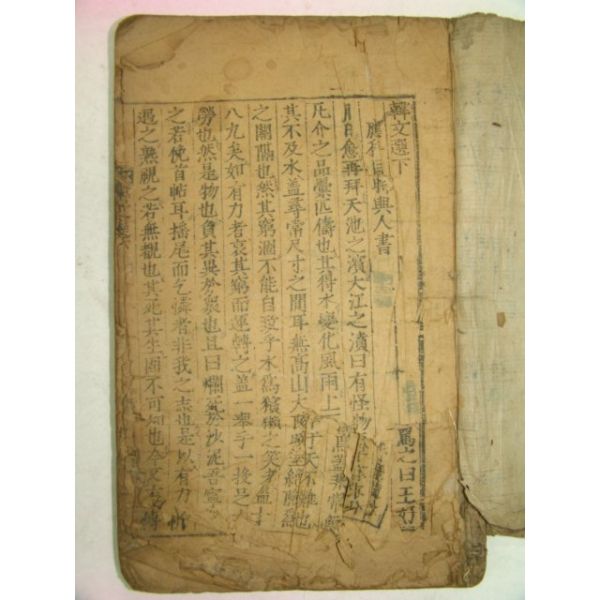 韓文選下
應科目時與人書
月日愈再拜天池之濱大江之濆曰有怪物
凡介之品彙匹儔也其得水變化風雨上 于天不難也
其不及水蓋尋常尺寸之間耳無高山大 絶險爲
之關隔也然其窮涸不能自致乎水爲獱獺之笑者蓋十
八九矣如有力者哀其窮而運轉之蓋一舉手一投足之
勞也然是物也負其異於衆也且曰爛死於沙泥吾寧
之若俛首帖耳搖尾而乞憐者非我之志也是以有力
遇之熟視之若無覩也其死其生固不可知也今又有
罵之曰王好